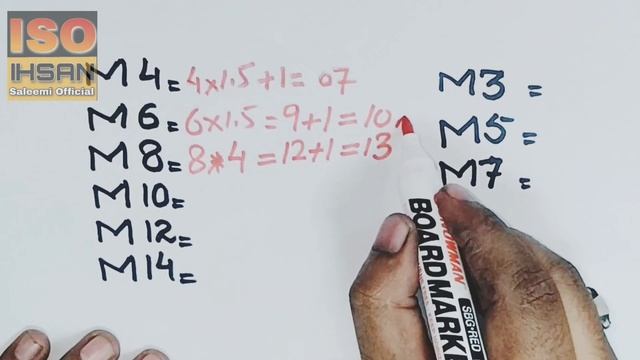 ISO
IHSAN
Saleemi Official
M4=4x1.5+1=07
M6=6x1.5=9+1=10
M8=8*4=12+1=13
M10=
M12=
M14=
M3=
M5=
M7=
BOARDMARK
SBG-RED